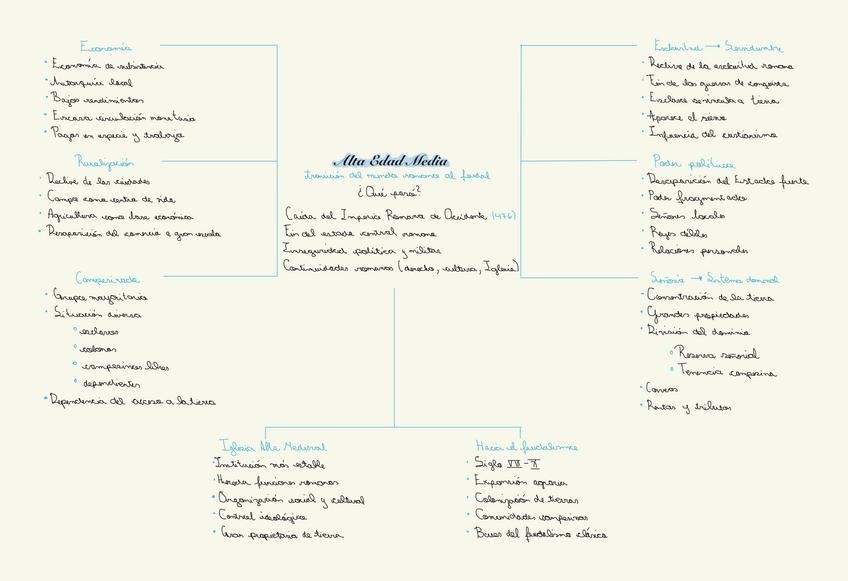 Alta Edad Media
transición del mundo romano al feudal
¿Qué pasó?
Caída del Imperio Romano de Occidente (476)
Fin del estado central romano
Inseguridad política y militar
Continuidades romanas (derecho, cultura, Iglesia)
Economía
Economía de subsistencia
Autarquía local
Bajos rendimientos
Escasa circulación monetaria
Pagos en especie y trabajo
Ruralización
Declive de las ciudades
Campo como centro de vida
Agricultura como base económica
Desaparición del comercio a gran escala
Campesinado
Grupo mayoritario
Situación diversa
esclavos
colonos
campesinos libres
dependientes
Dependencia del acceso a la tierra
Esclavitud → Servidumbre
Declive de la esclavitud romana
Fin de las guerras de conquista
Esclavo se vincula a tierra
Aparece el siervo
Influencia del cristianismo
Poder político
Desaparición del Estado fuerte
Poder fragmentado
Señores locales
Reyes débiles
Relaciones personales
Señorío → Sistema dominal
Concentración de la tierra
Grandes propiedades
División del dominio
Reserva señorial
Tenencia campesina
Corveas
Rentas y tributos
Iglesia Alta Medieval
Institución más estable
Hereda funciones romanas
Organización social y cultural
Control ideológico
Gran propietaria de tierra
Hacia el feudalismo
Siglo
Expansión agraria
Colonización de tierras
Comunidades campesinas
Bases del feudalismo clásico